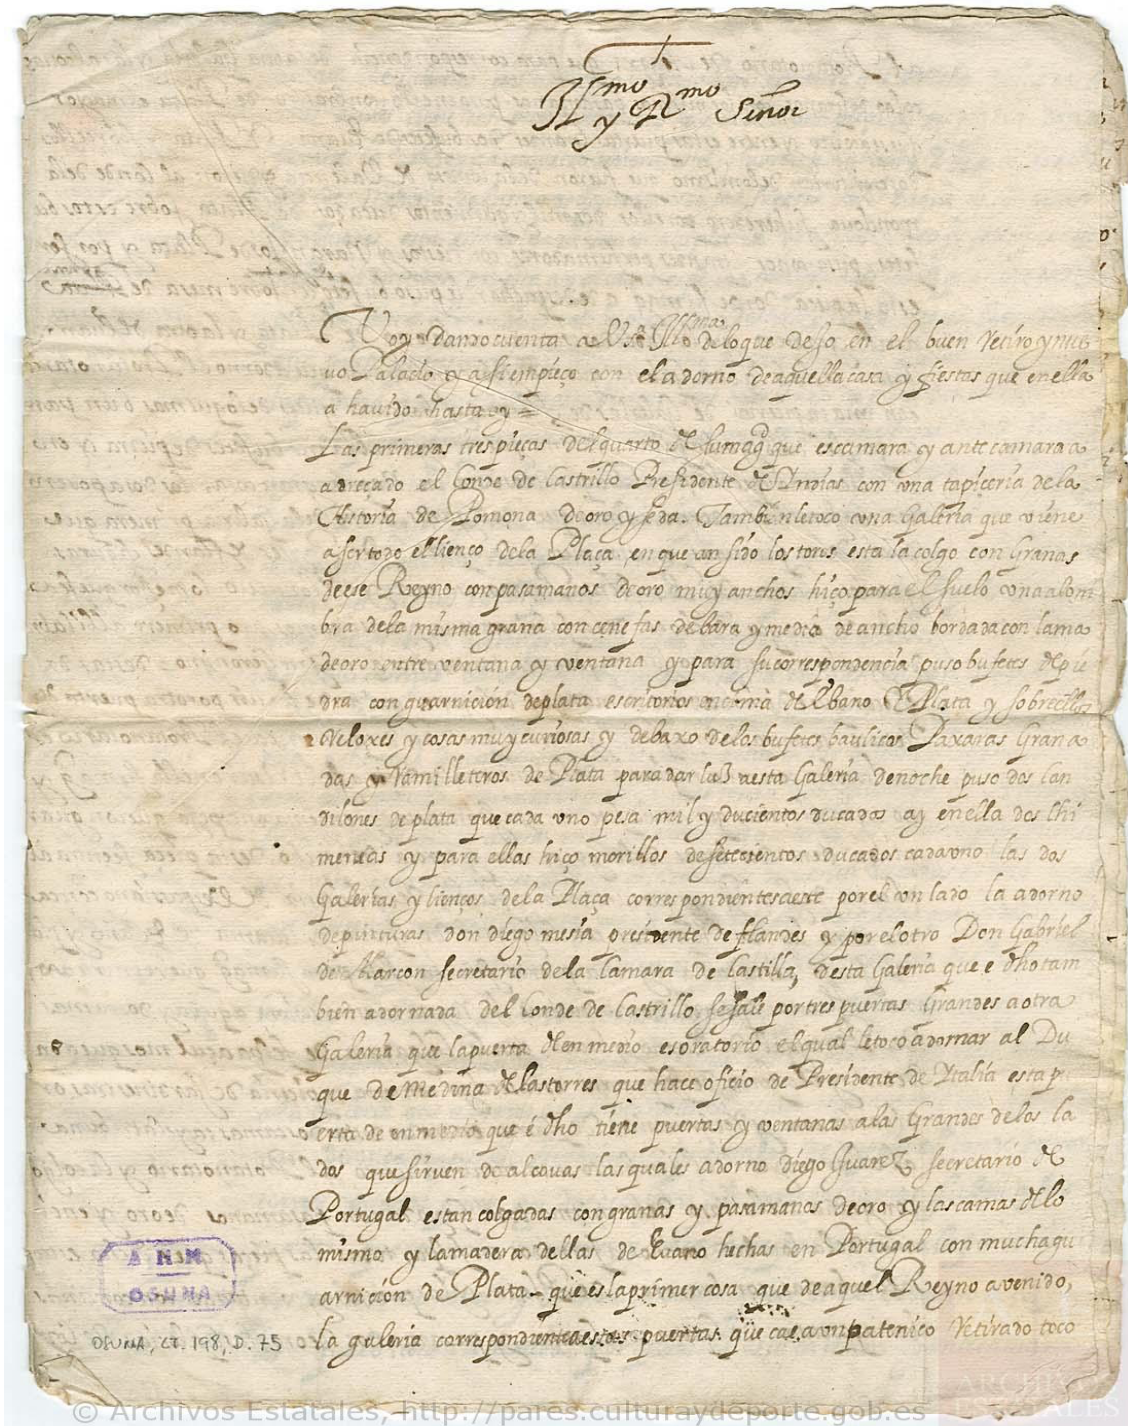 Illmo y Rmo Señor
Voy dando cuenta a V. S. Illma de lo que de so en el buen Retiro y nue
vo Palacio y asi empieço con el adorno de aquella casa y fiestas que en ella
a havido hasta oy =
Las primeras tres pieças del quarto de su magd que es camara y antecamara a
adreçado el Conde de Castrillo Presidente de Yndias con una tapiçeria de la
Historia de Pomona de oro y seda. Tambien le toco una Galeria que viene
a ser todo el lienço de la Plaça en que an sido los toros esta la colgo con Granas
de ese Reyno con pasamanos de oro muy anchos hiço para el suelo una alom
bra de la misma grana con cenefas de bara y media de ancho bordada con lama
de oro entre ventana y ventana y para su correspondencia puso bufetes de pie
dra con guarnición de plata escritorios encima de Ebano y Plata y sobre ellos
Reloxes y cosas muy curiosas y debaxo de los bufetes baulicos Paxaras Grana
das y Ramilleteros de Plata para dar luz a esta Galeria de noche puso dos lan
dilones de plata que cada uno pesa mil y ducientos ducados ay en ella dos chi
meneas y para ellas hiço morillos de setecientos ducados cada uno las dos
Galerias y lienços de la Plaça correspondientes a este por el un lado la adorno
de pinturas don diego mesia presidente de flandes y por el otro Don Gabriel
de Alarcon secretario de la Camara de Castilla, desta Galeria que e dho tam
bien adornada del Conde de Castrillo se sale por tres puertas Grandes a otra
Galeria que la puerta de en medio es oratorio el qual le toco adornar al Du
que de Medina de lastorres que hace oficio de Presidente de Ytalia esta pu
erta de en medio que é dho tiene puertas y ventanas a las Grandes de los la
dos que sirven de alcovas las quales adorno diego Suarez secretario de
Portugal estan colgadas con granas y pasamanos de oro y las camas de lo
mismo y la madera dellas de Evano hechas en Portugal con mucha gu
arnición de Plata que es la primer cosa que de aquel Reyno a venido,
la galeria correspondiente a estas puertas que cae a un patenico Retirado toco
A H N
OSUNA
OSUNA, CT. 198, D. 75
ARCHIVOS ESTATALES
© Archivos Estatales, http://pares.culturaydeporte.gob.es